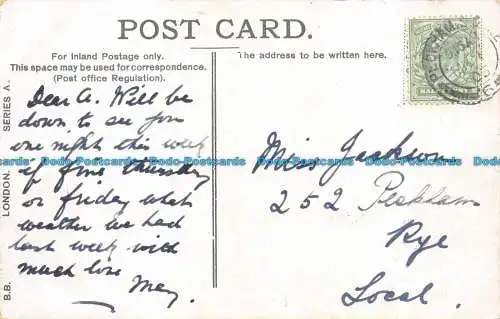 POST CARD.
For Inland Postage only.
This space may be used for correspondence.
(Post office Regulation).
The address to be written here.
Dear A. Will be
down to see you
one night this week
if fine Thursday
or Friday what
weather we had
last week with
much love
May.
Miss Jackson
252 Peckham
Rye
Local.
B.B. LONDON. SERIES A.
Dodo-Postcards Dodo-Postcards Dodo-Postcards Dodo-Postcards Dodo-Postcards